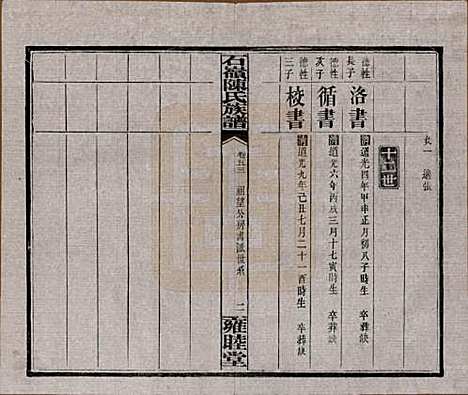 女一 適張
十五世
德牲長子 洛書 清道光四年甲申正月初八子時生 卒葬缺
德牲次子 循書 清道光六年丙戌三月十七寅時生 卒葬缺
德牲三子 校書 清道光九年己丑七月二十一酉時生 卒葬缺
石嶺陳氏族譜 卷五三 祖望公房 世系 二 雍睦堂